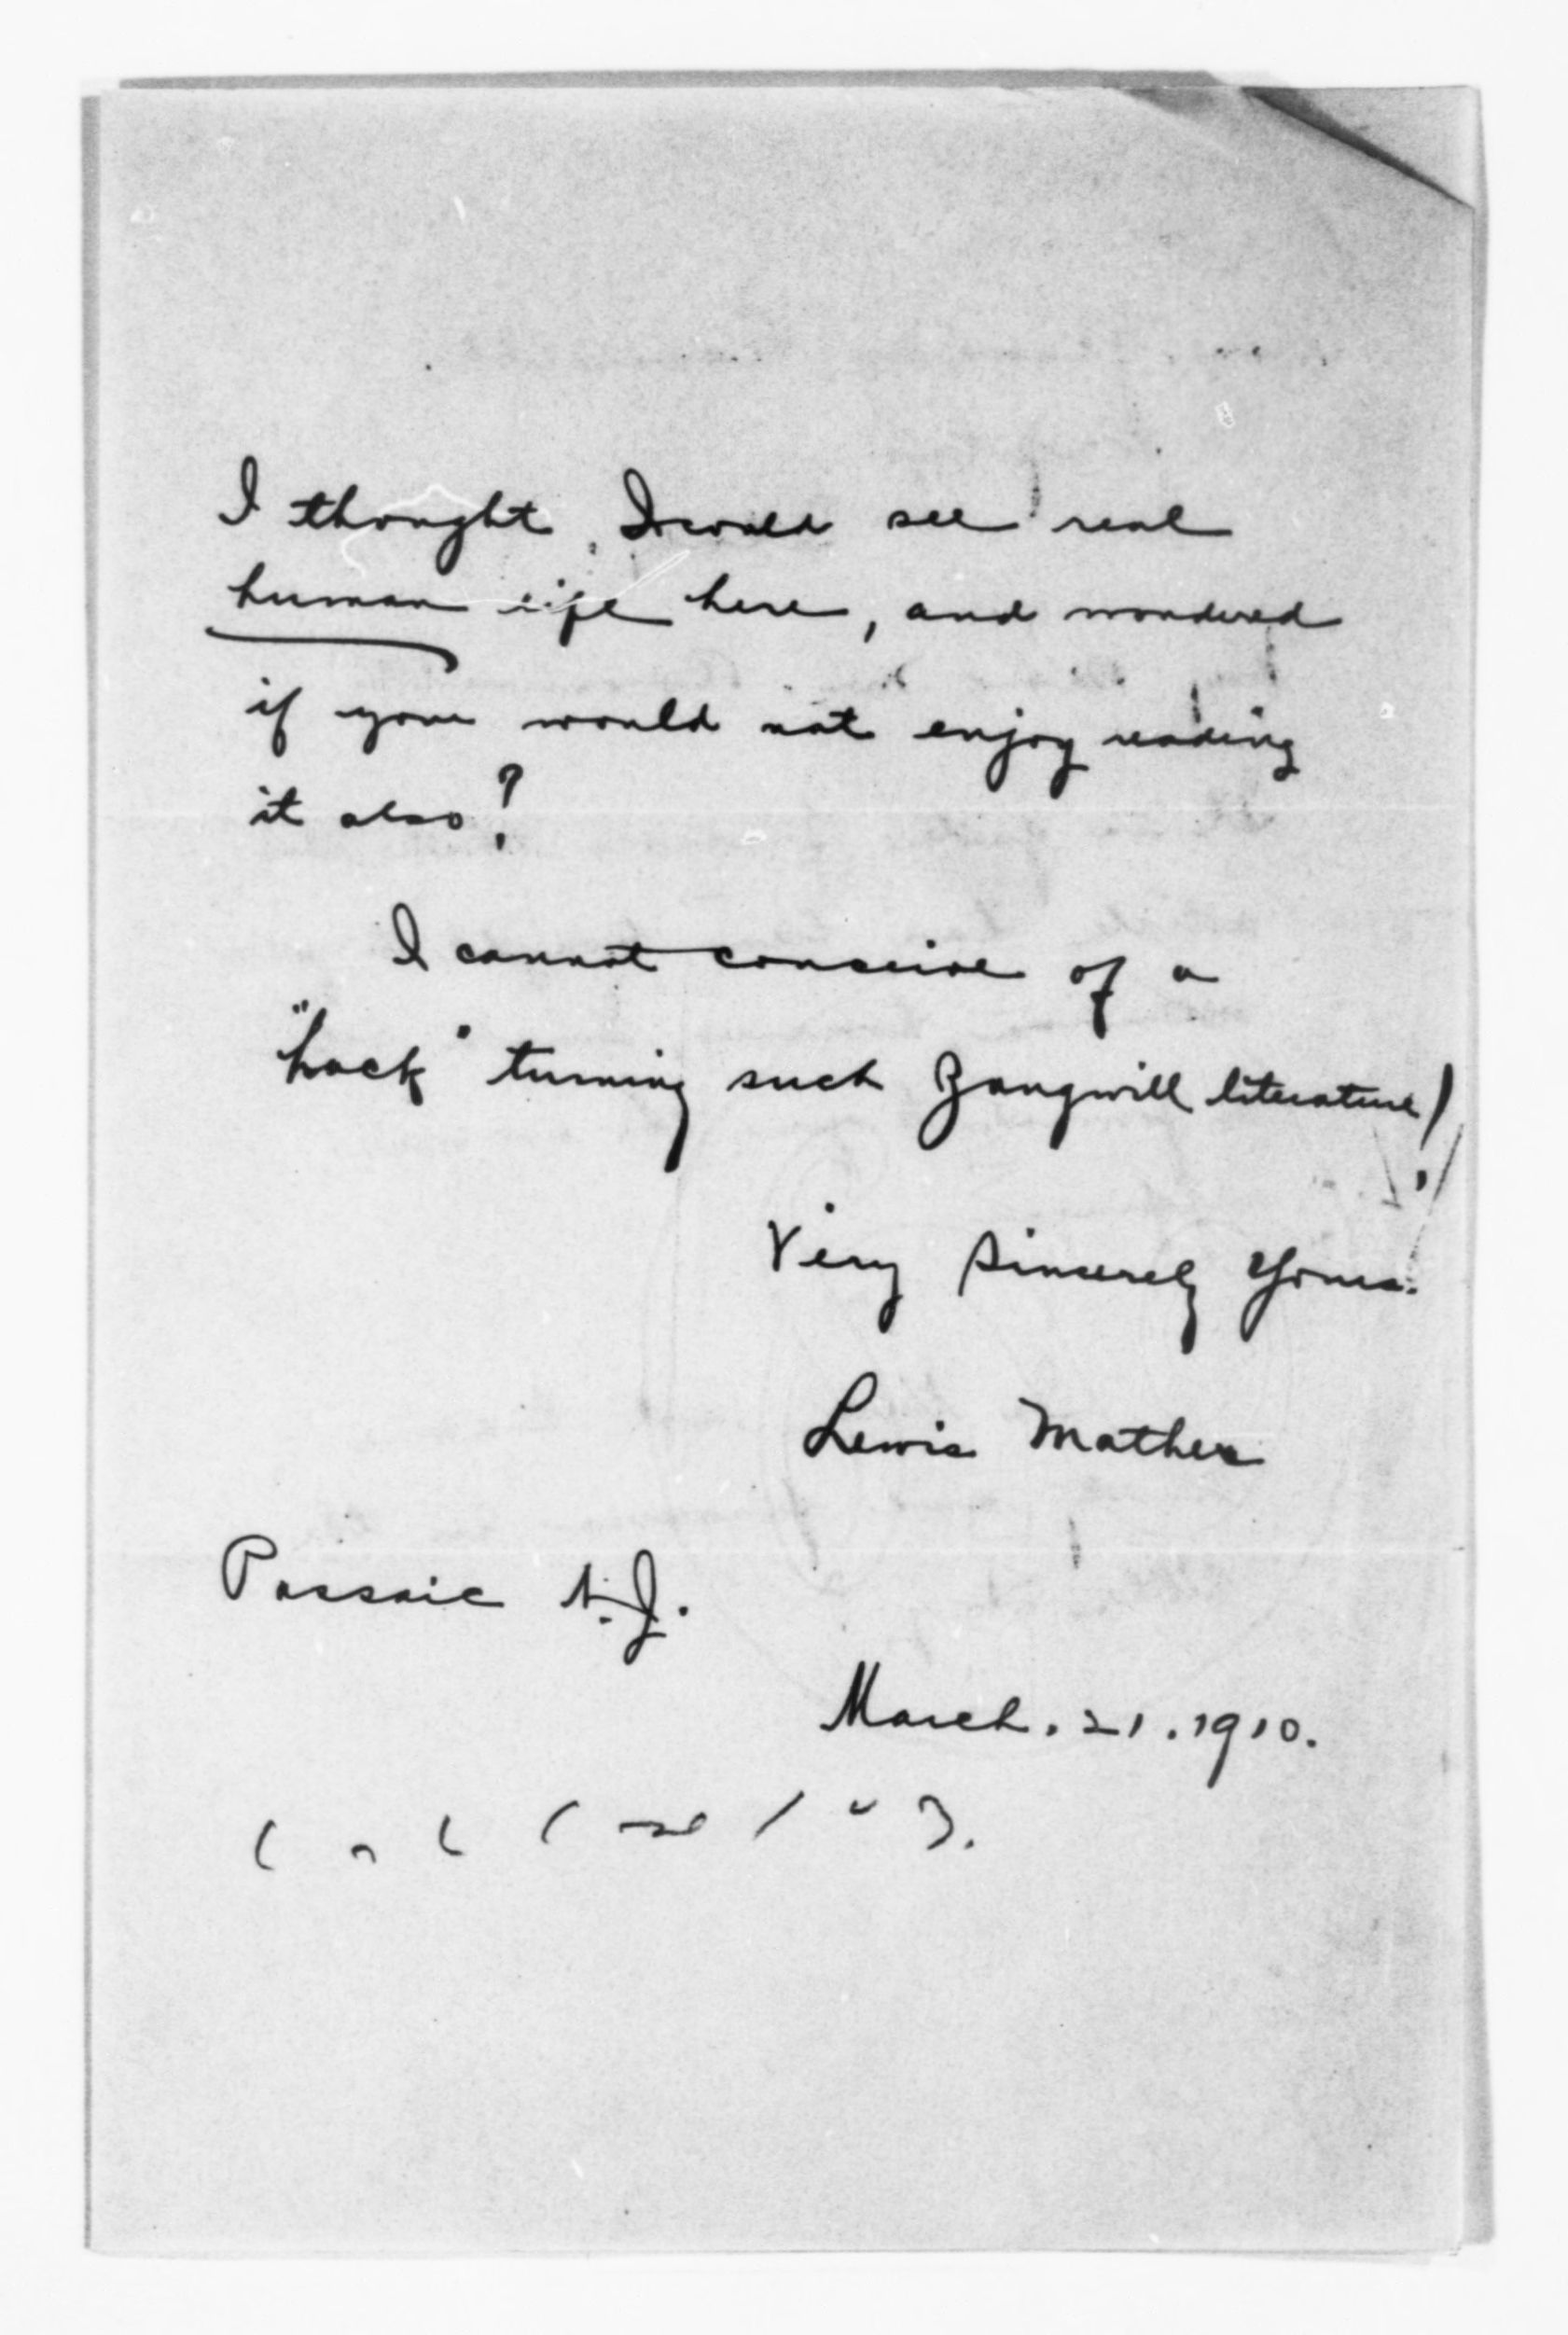 I thought I could see real
human life here, and wondered
if you would not enjoy reading
it also?
I cannot conceive of a
"hack" turning such Zangwill literature!
Very Sincerely Yours.
Lewis Mathes
Passaic N.J.
March. 21. 1910.